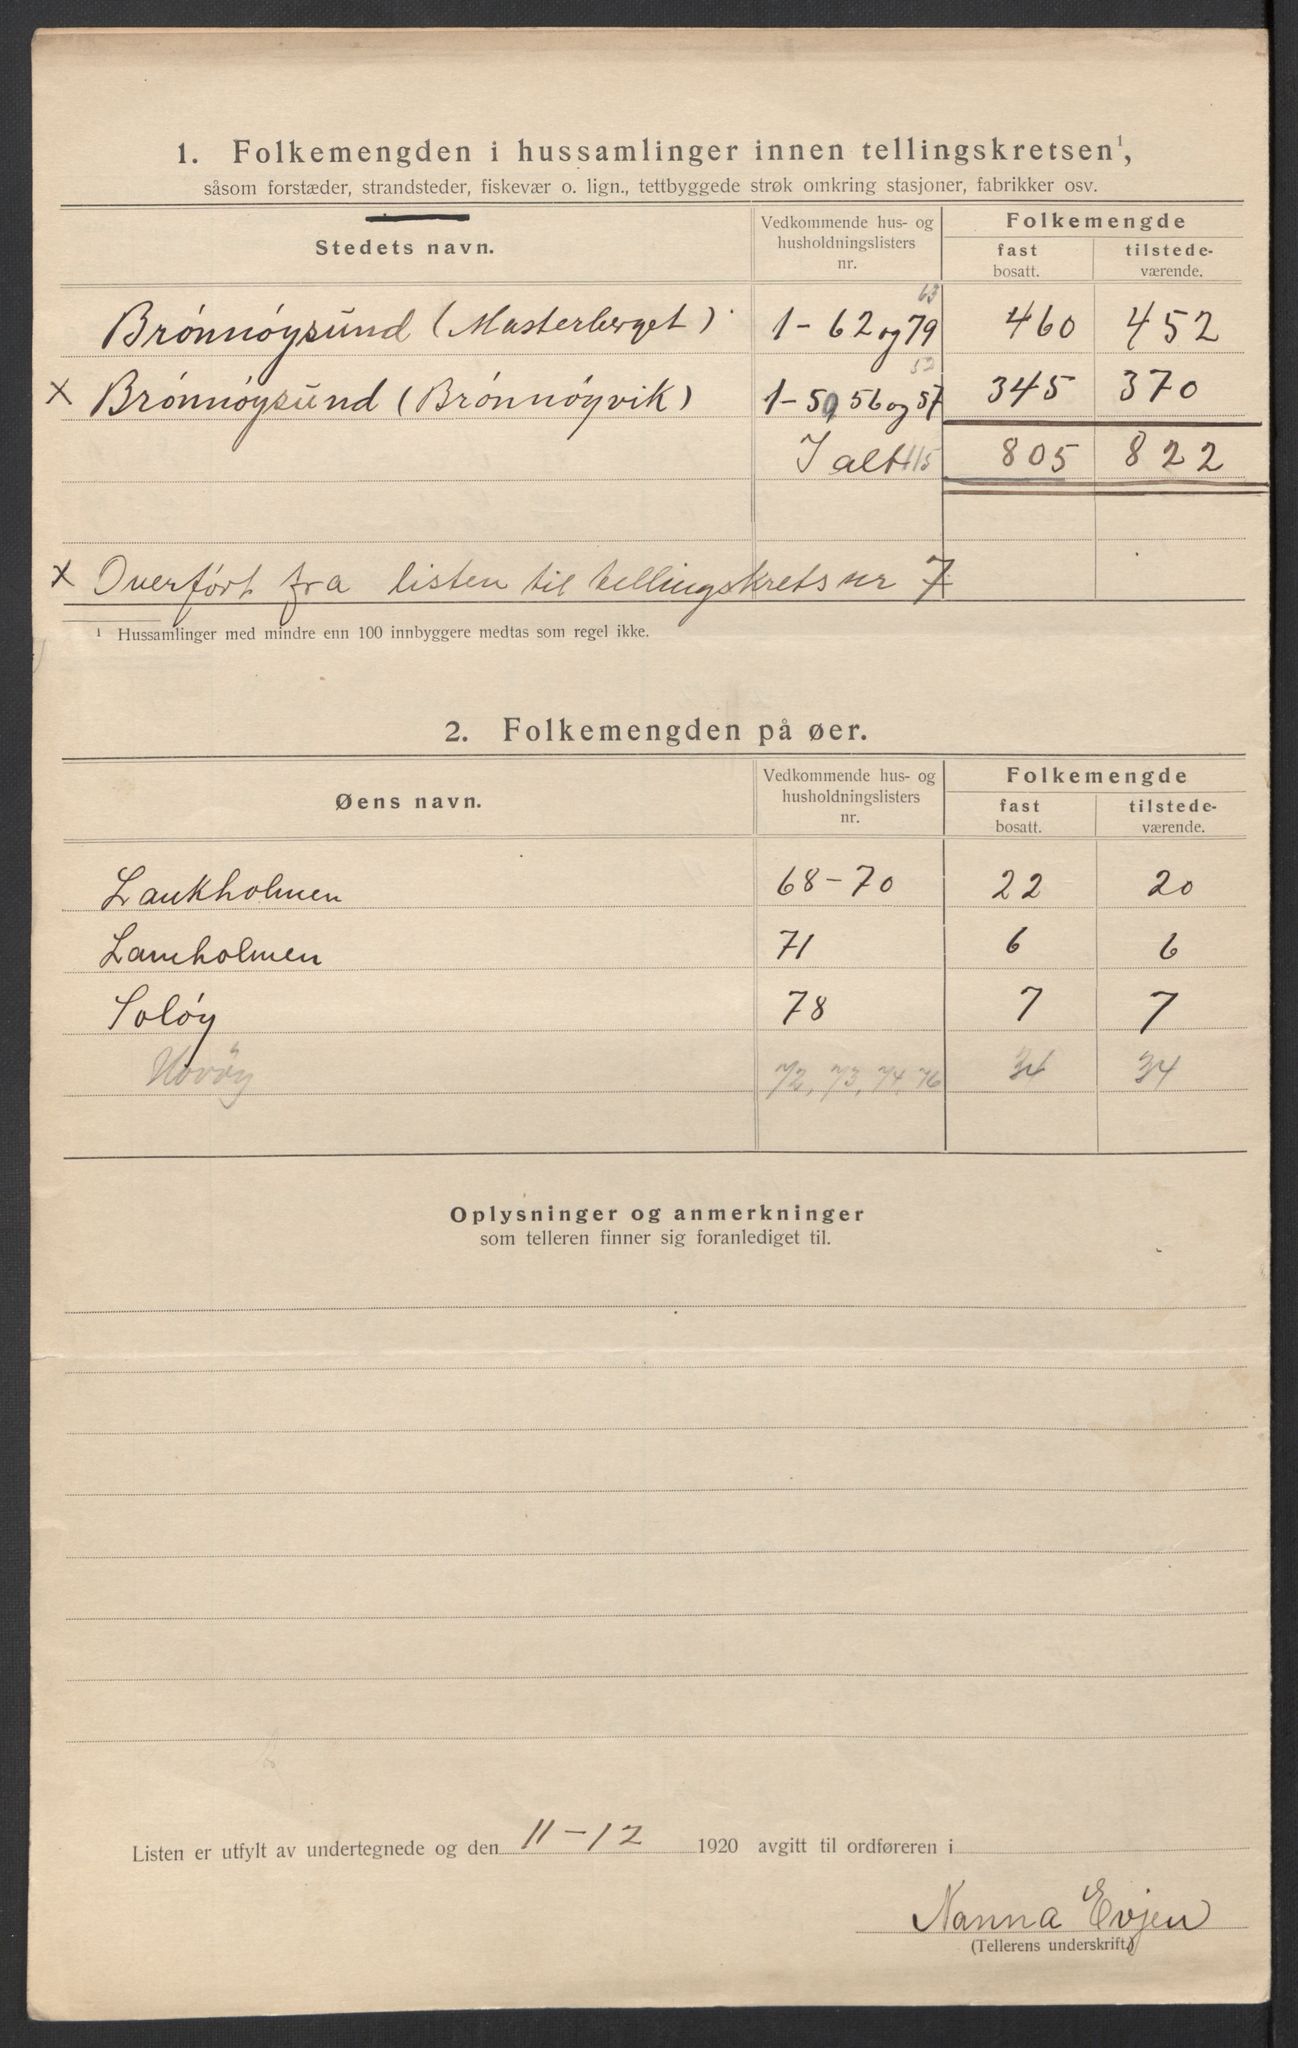 1. Folkemengden i hussamlinger innen tellingskretsen¹,
såsom forstæder, strandsteder, fiskevær o. lign., tettbyggede strøk omkring stasjoner, fabrikker osv.
Stedets navn.
Vedkommende hus- og husholdningslisters nr.
Folkemengde
fast bosatt.
tilstede-værende.
63
Brønnøysund (Masterberget) 1-62 og 79 460 452
52
X Brønnøysund (Brønnøyvik) 1-50, 56 og 57 345 370
I alt 115 805 822
X Overført fra listen til tellingskrets nr 7
¹ Hussamlinger med mindre enn 100 innbyggere medtas som regel ikke.
2. Folkemengden på øer.
Øens navn.
Vedkommende hus- og husholdningslisters nr.
Folkemengde
fast bosatt.
tilstede-værende.
Laukholmen 68-70 22 20
Lamholmen 71 6 6
Soløy 78 7 7
Havøy 72, 73, 74, 76 34 34
Oplysninger og anmerkninger
som telleren finner sig foranlediget til.
Listen er utfylt av undertegnede og den 11-12 1920 avgitt til ordføreren i
Nanna Evjen
(Tellerens underskrift.)